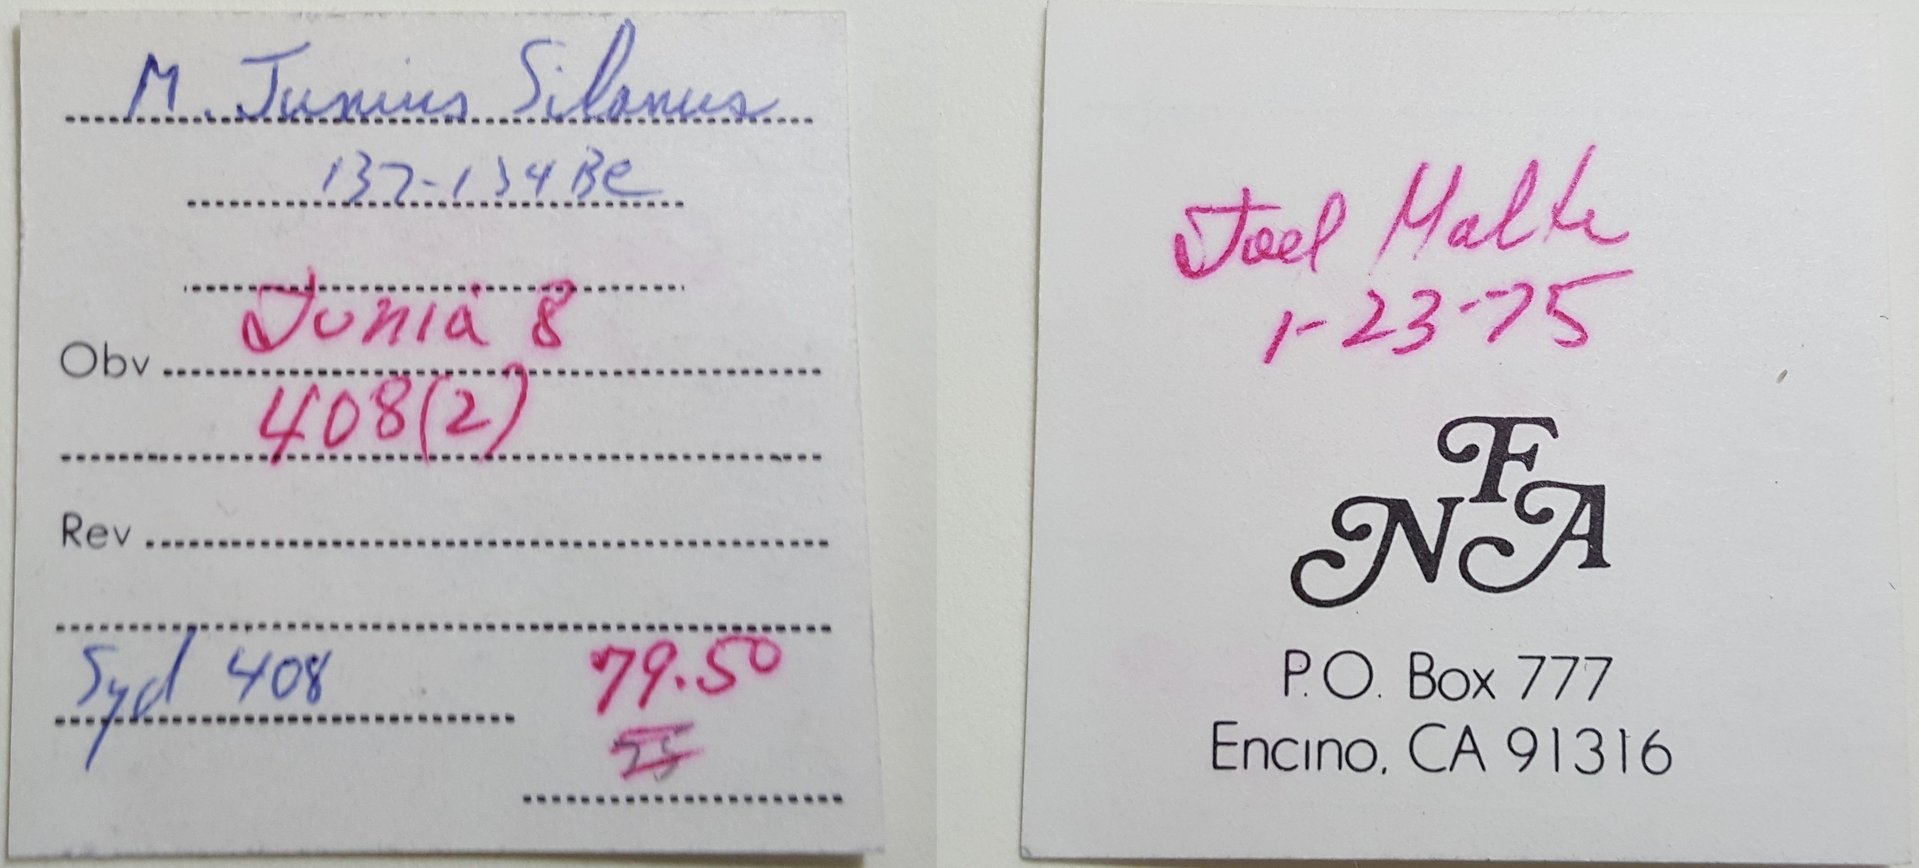 M. Junius Silanus
137-134 BC
Obv Junia 8
408(2)
Rev
Syd 408
79.50
75
Joel Malte
1-23-75
NFA
P.O. Box 777
Encino, CA 91316